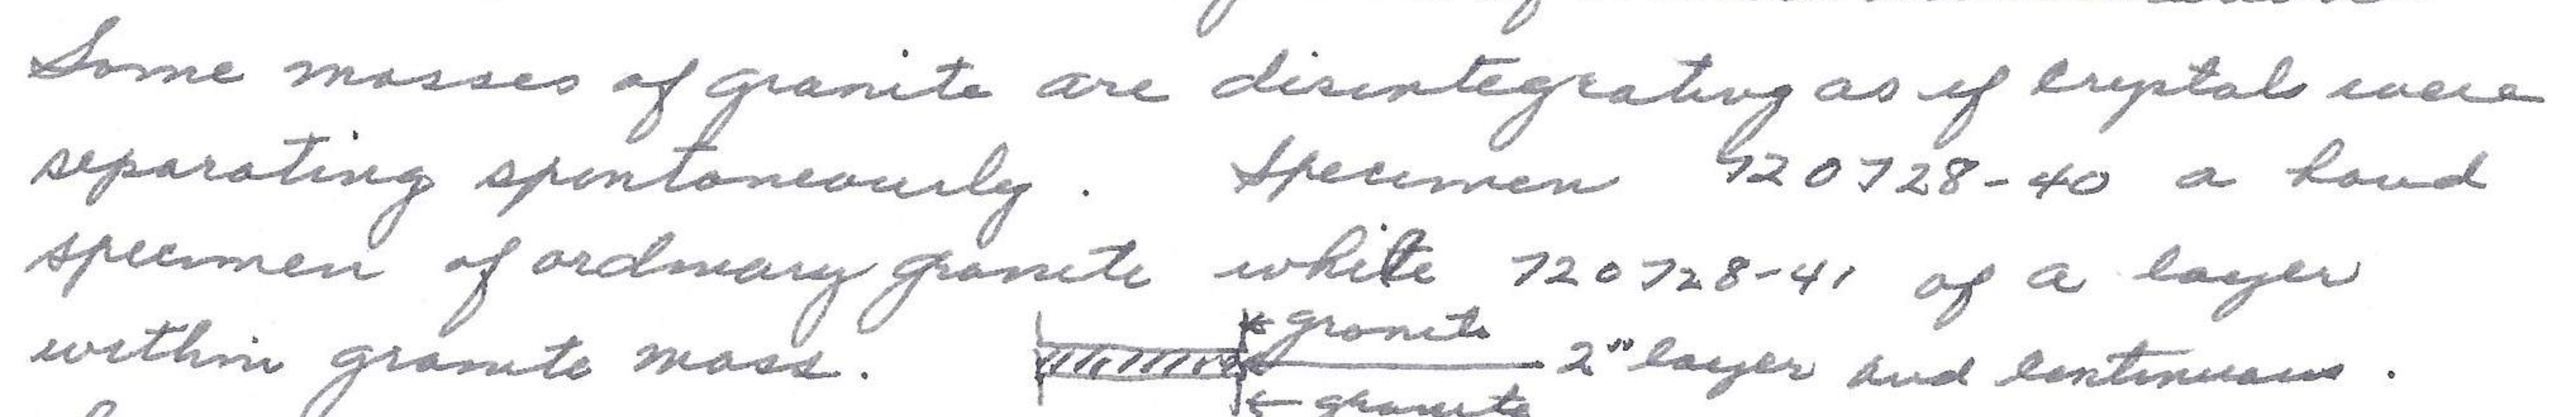 Some masses of granite are disintegrating as if crystals were
separating spontaneously. Specimen 720728-40 a hand
specimen of ordinary granite while 720728-41 of a layer
within granite mass. ← granite
2" layer and continuous.
← granite